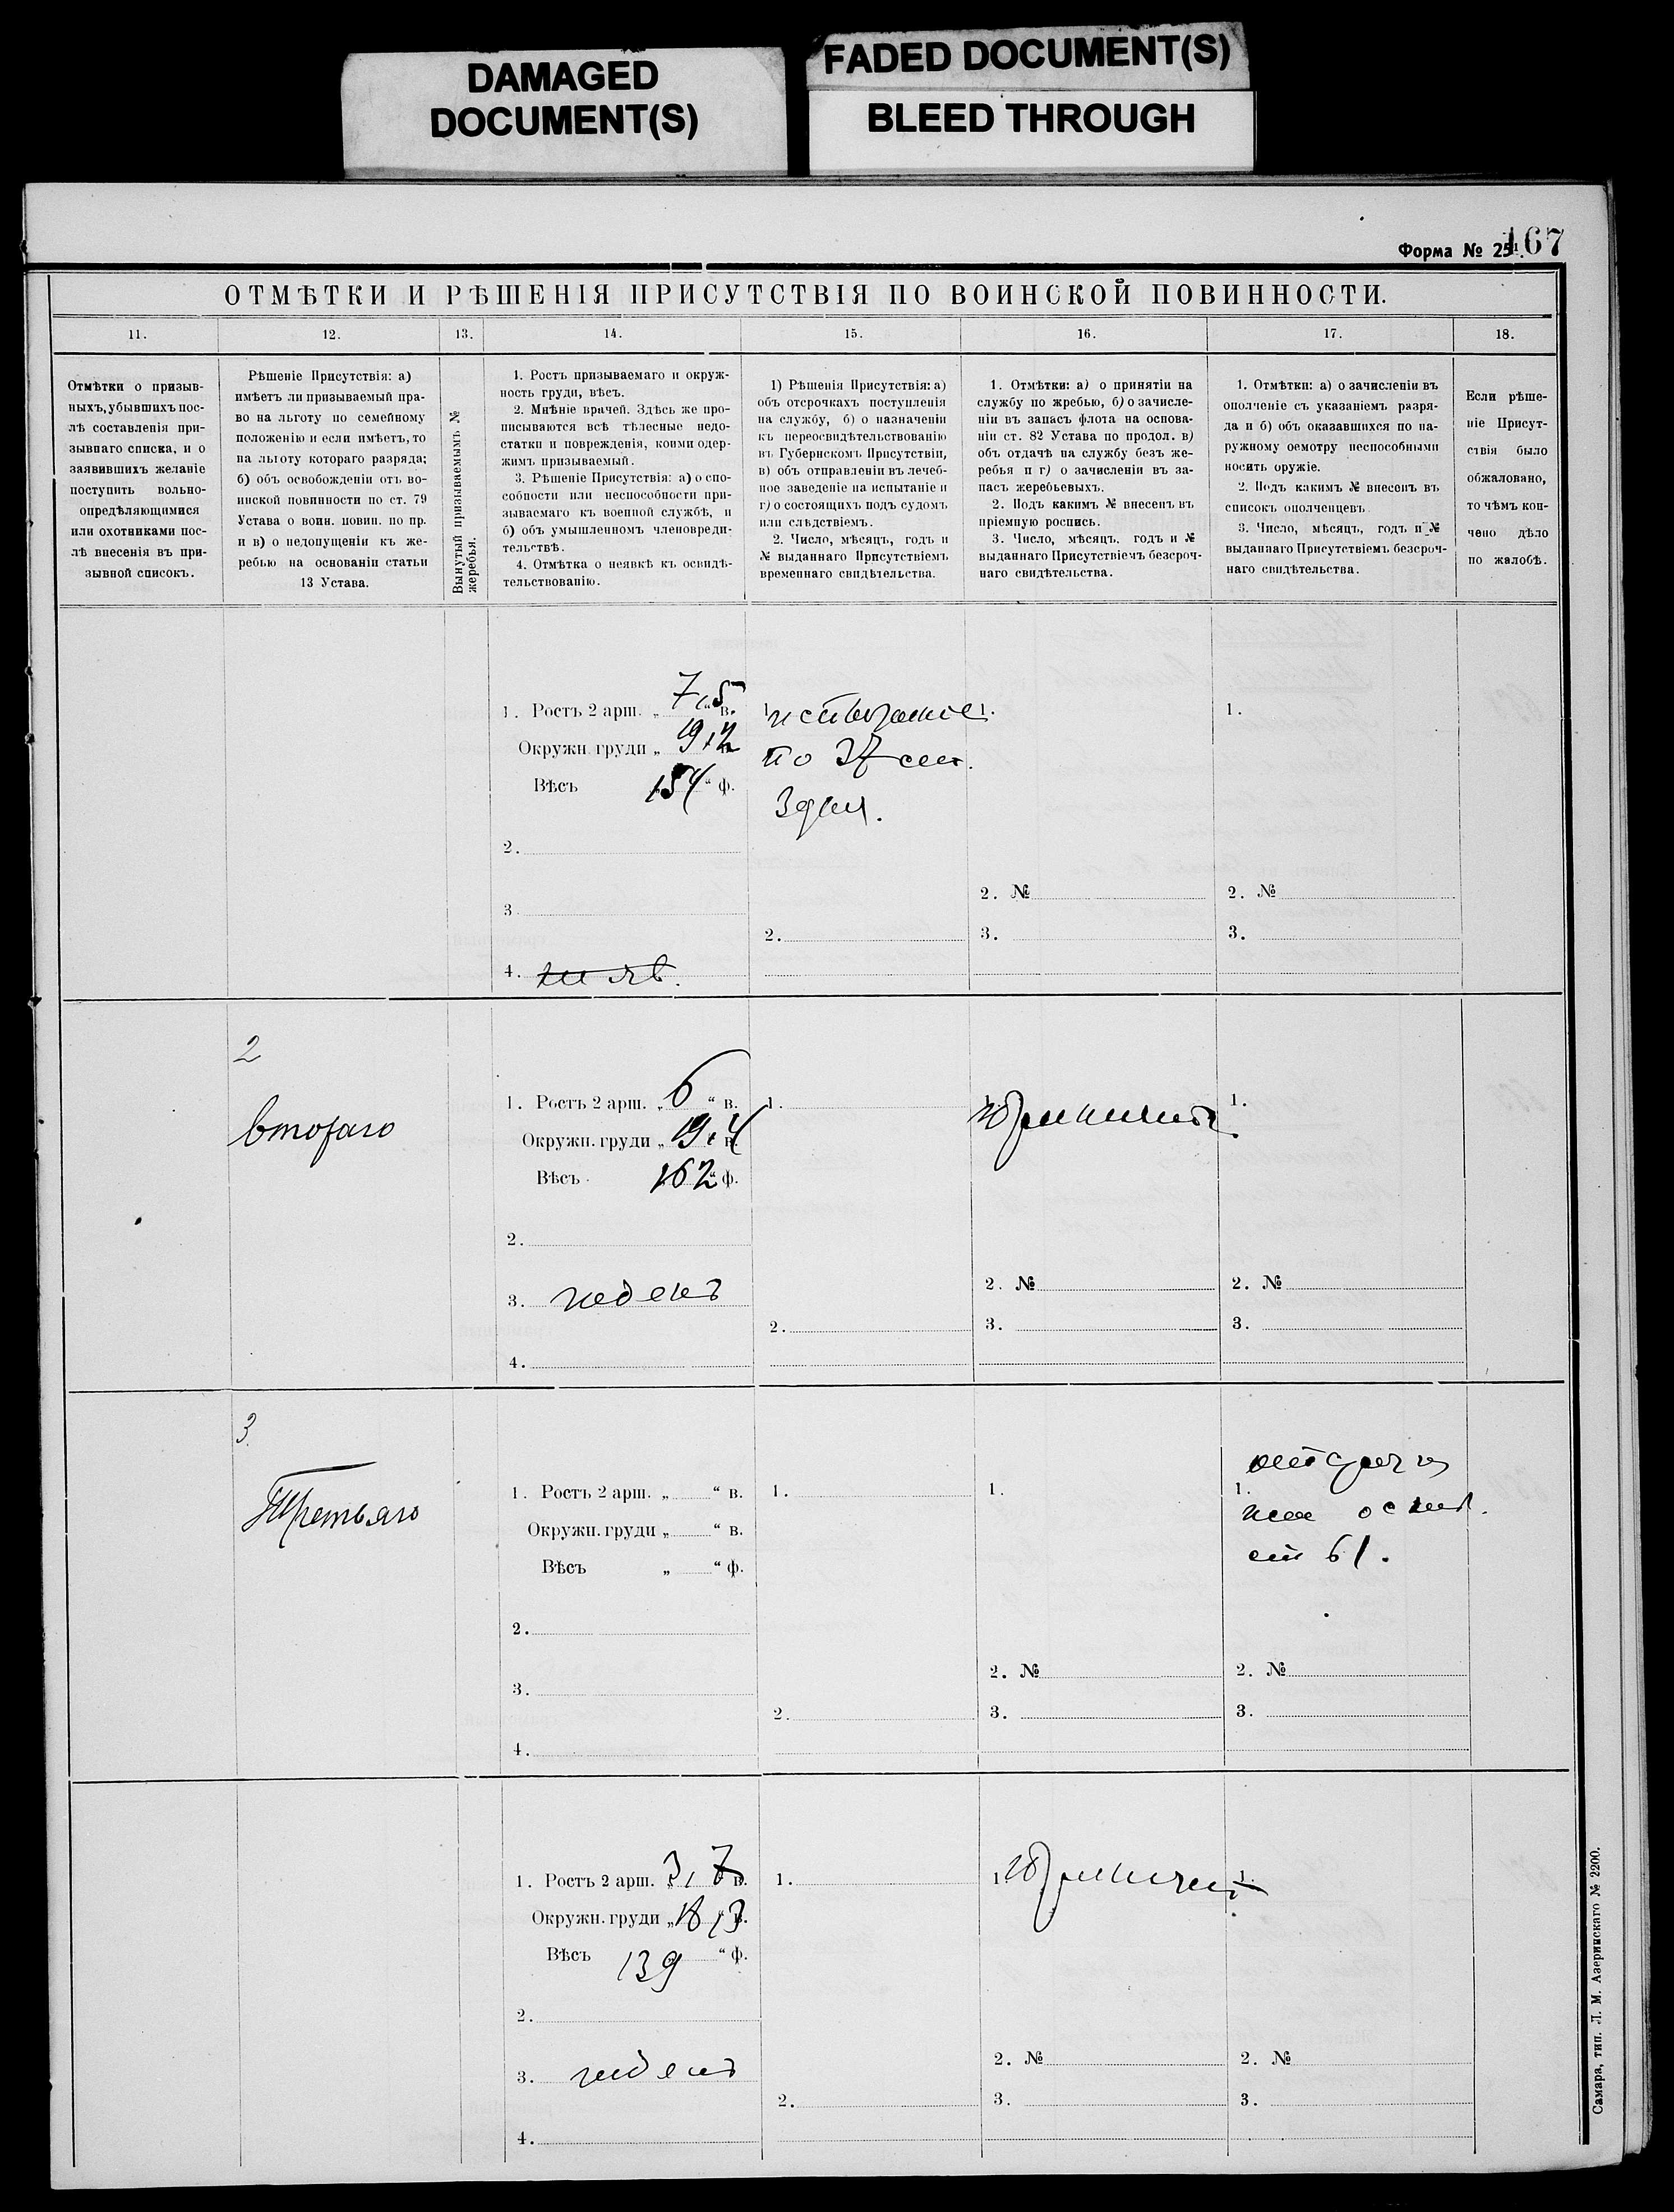 DAMAGED
DOCUMENT(S)
FADED DOCUMENT(S)
BLEED THROUGH
Форма № 25¹.
167
ОТМѢТКИ И РѢШЕНІЯ ПРИСУТСТВІЯ ПО ВОИНСКОЙ ПОВИННОСТИ.
11.
12.
13.
14.
15.
16.
17.
18.
Отмѣтки о призыв-
ныхъ, убывшихъ пос-
лѣ составленія при-
зывнаго списка, и о
заявившихъ желаніе
поступить вольно-
опредѣляющимися
или охотниками пос-
лѣ внесенія въ при-
зывной списокъ.
Рѣшеніе Присутствія: а)
имѣетъ ли призываемый пра-
во на льготу по семейному
положенію и если имѣетъ, то
на льготу котораго разряда;
б) объ освобожденіи отъ во-
инской повинности по ст. 79
Устава о воин. повин. по пр.
и в) о недопущеніи къ же-
ребью на основаніи статьи
13 Устава.
Вынутый призываемымъ №
жеребья.
1. Ростъ призываемаго и окруж-
ность груди, вѣсъ.
2. Мнѣніе врачей. Здѣсь же про-
писываются всѣ тѣлесные недо-
статки и поврежденія, коими одер-
жимъ призываемый.
3. Рѣшеніе Присутствія: а) о спо-
собности или неспособности при-
зываемаго къ военной службѣ, и
б) объ умышленномъ членовреди-
тельствѣ.
4. Отмѣтка о неявкѣ къ освидѣ-
тельствованію.
1) Рѣшенія Присутствія: а)
объ отсрочкахъ поступленія
на службу, б) о назначеніи
къ переосвидѣтельствованію
въ Губернскомъ Присутствіи,
в) объ отправленіи въ лечеб-
ное заведеніе на испытаніе и
г) о состоящихъ подъ судомъ
или слѣдствіемъ.
2. Число, мѣсяцъ, годъ и
№ выданнаго Присутствіемъ
временнаго свидѣтельства.
1. Отмѣтки: а) о принятіи на
службу по жребью, б) о зачисле-
ніи въ запасъ флота на основа-
ніи ст. 82 Устава по продол. в)
объ отдачѣ на службу безъ же-
ребья и г) о зачисленіи въ за-
пасъ жеребьевыхъ.
2. Подъ какимъ № внесенъ въ
пріемную роспись.
3. Число, мѣсяцъ, годъ и №
выданнаго Присутствіемъ безсроч-
наго свидѣтельства.
1. Отмѣтки: а) о зачисленіи въ
ополченіе съ указаніемъ разря-
да и б) объ оказавшихся по на-
ружному осмотру неспособными
носить оружіе.
2. Подъ какимъ № внесенъ въ
списокъ ополченцевъ.
3. Число, мѣсяцъ, годъ и №
выданнаго Присутствіемъ безсроч-
наго свидѣтельства.
Если рѣше-
ніе Присут-
ствія было
обжаловано,
то чѣмъ кон-
чено дѣло
по жалобѣ.
1. Ростъ 2 арш. „ 7,5 “ в.
Окружн. груди „ 19,2
Вѣсъ 154 “ ф.
2.
3.
4. не яв.
1.
по 37 сен.
3 дня.
2.
1.
2. №
3.
1.
2. №
3.
2
втораго
1. Ростъ 2 арш. „ 6 “ в.
Окружн. груди „ 19,4 в.
Вѣсъ 162 “ ф.
2.
3. годенъ
4.
1.
2.
принятъ
2. №
3.
1.
2. №
3.
3
Третьяго
1. Ростъ 2 арш. „ “ в.
Окружн. груди „ “ в.
Вѣсъ „ “ ф.
2.
3.
4.
1.
2.
1.
2. №
3.
отсрочка
1.
на основ.
ст 61.
2. №
3.
1. Ростъ 2 арш. 3,7 в.
Окружн. груди „ 18,3 в.
Вѣсъ 139 “ ф.
2.
3. годенъ
4.
1.
2.
1. принятъ
2. №
3.
1.
2. №
3.
Самара, тип. Л. М. Азеринскаго № 2200.